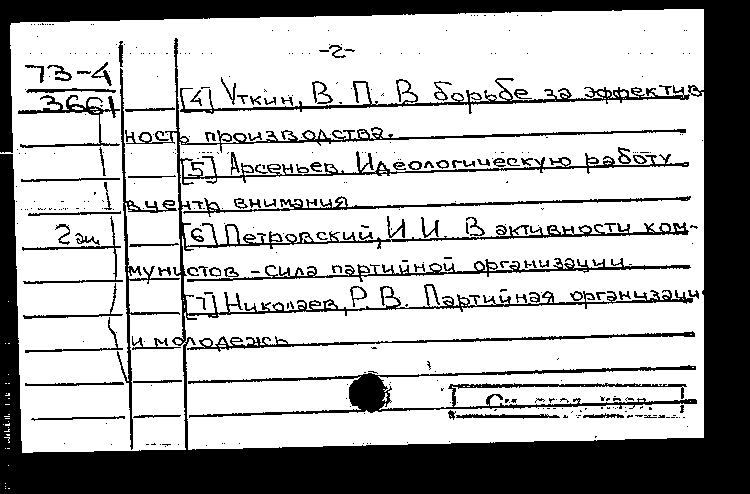 -2-
73-4
3661
[4] Уткин, В. П. В борьбе за эффектив-
ность производства.
[5] Арсеньев. Идеологическую работу
в центр внимания.
2 эк
[6] Петровский, И. И. В активности ком-
мунистов - сила партийной организации.
[7] Николаев, Р. В. Партийная организаци
и молодежь
См.